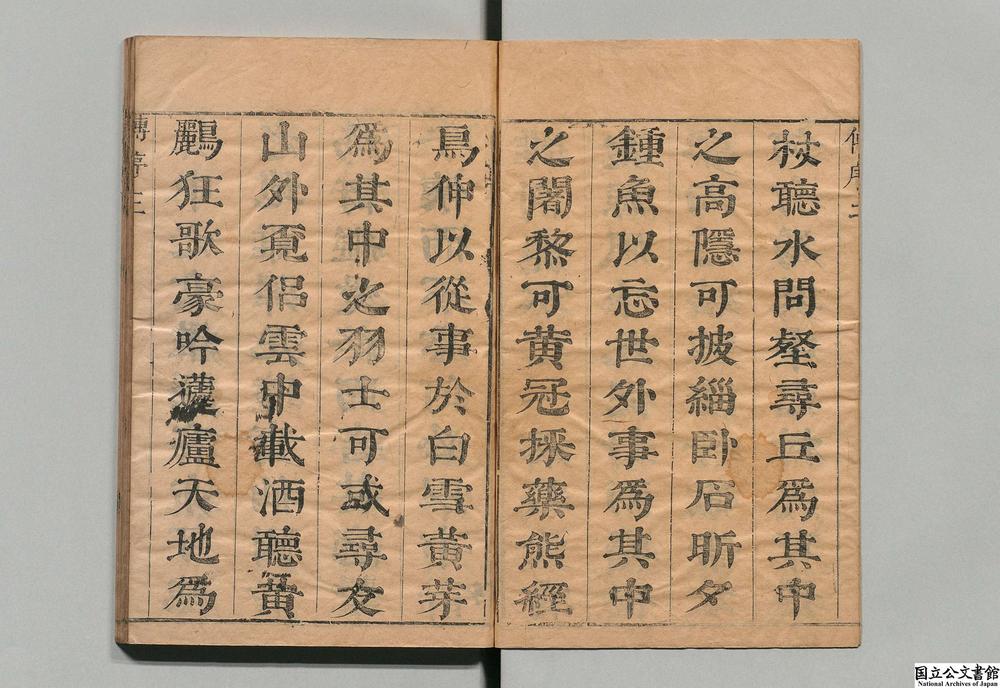 杖聽水問壑尋丘為其中
之高隱可披緇卧石昕夕
鍾魚以忘世外事為其中
之闍黎可黄冠採藥熊經
鳥伸以從事於白雪黄芽
為其中之羽士可或尋友
山外覔侶雲中載酒聽黄
鸝狂歌豪吟蘧廬天地為
国立公文書館
National Archives of Japan